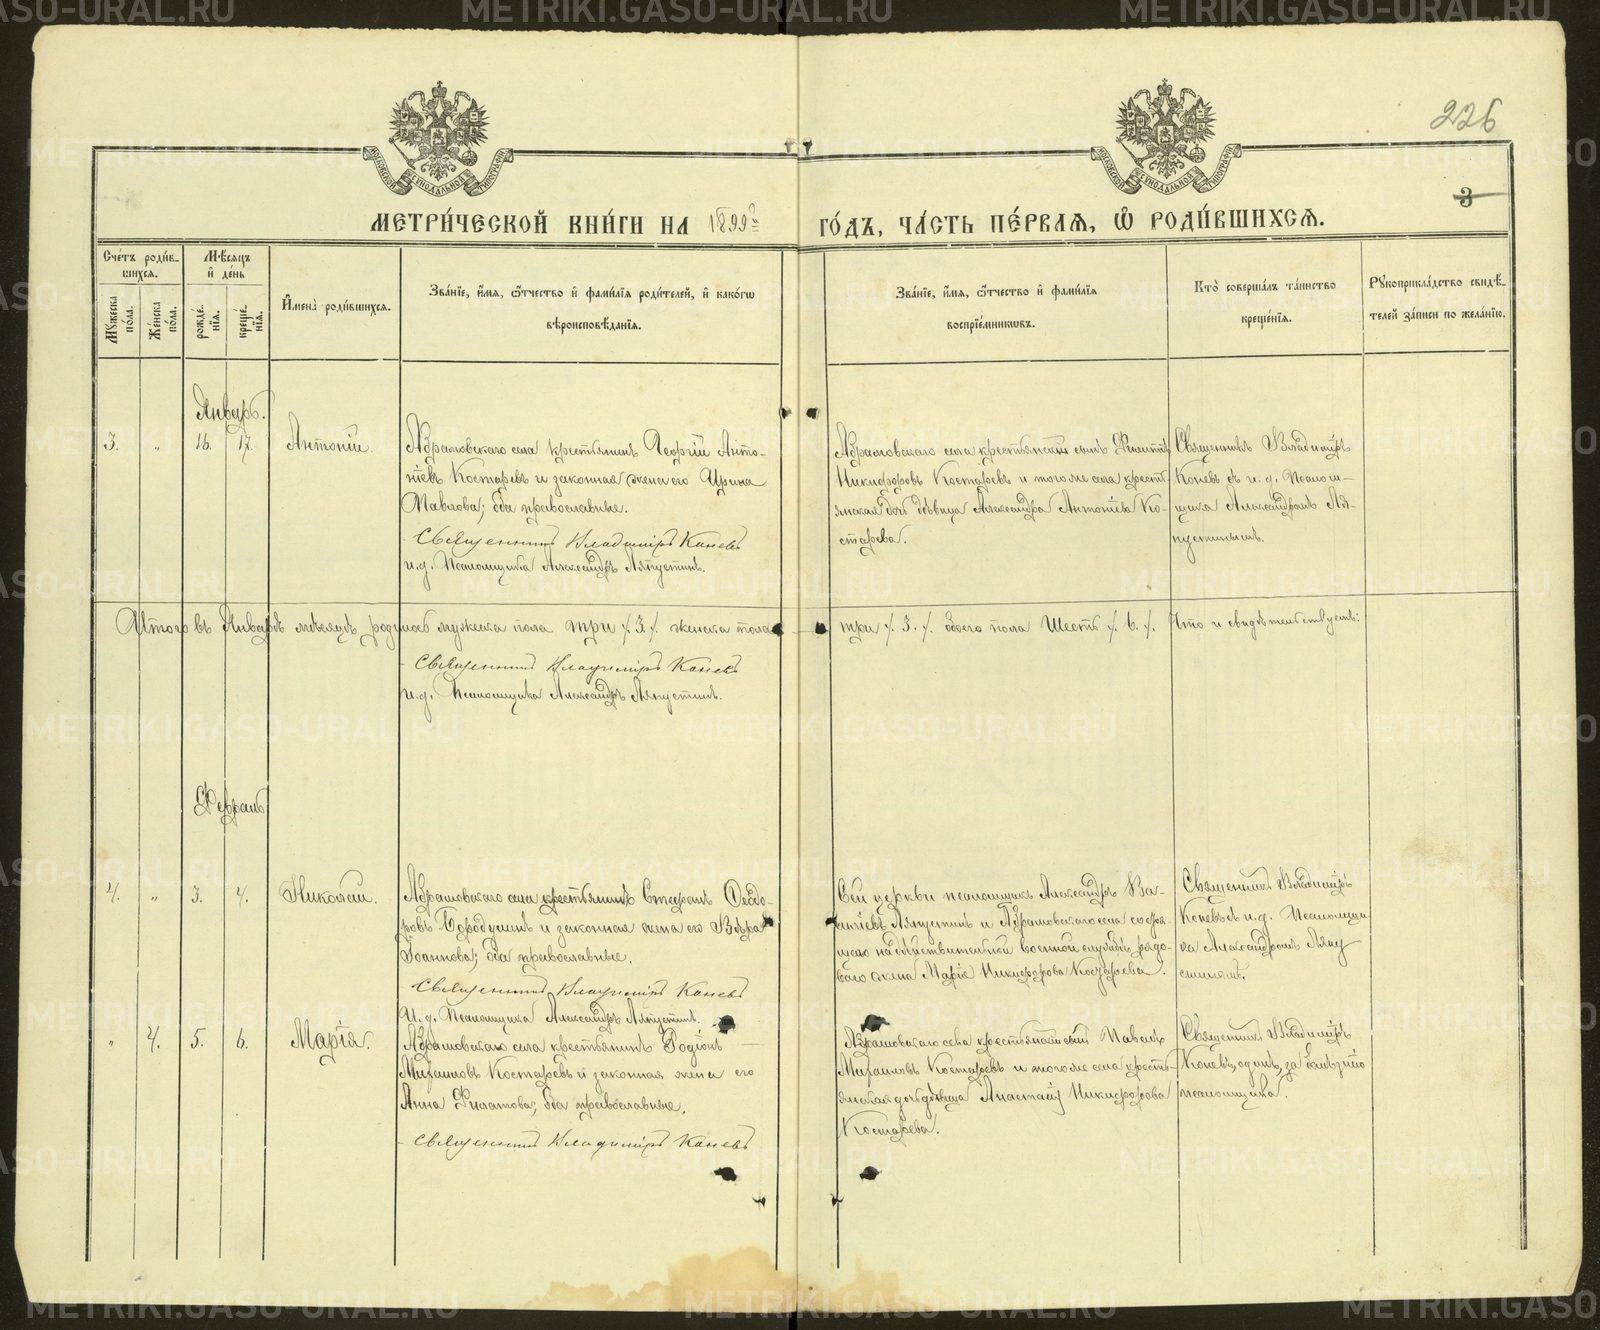 226
3
МЕТРИ́ЧЕСКОЙ КНИ́ГИ НА 1899й ГО́ДЪ, ЧА́СТЬ ПЕ́РВАѦ, Ѽ РОДИ́ВШИХСѦ.
Сче́тъ роди́в-
шихся.
Мѣ́сяцъ
и҆ де́нь
Мꙋ́жеска по́ла.
Же́нска по́ла.
рожде́-
нїѧ.
креще́-
нїѧ.
И҆мена̀ роди́вшихся.
Зва́нїе, и҆́мя, ѻ҆́тчество и҆ фами́лїя роди́телей, и҆ како́гѡ
вѣроисповѣ́данїѧ.
Зва́нїе, и҆́мя, ѻ҆́тчество и҆ фами́лїя
воспрїе́мникѡвъ.
Кто̀ соверша́лъ та́инство
креще́нїѧ.
Рꙋкоприкла́дство свидѣ́-
телей за́писи по жела́нїю.
Январь.
3. „ 16. 17. Антоній.
Абрамовскаго села крестьянинъ Георгій Анто-
ніевъ Костаревъ и законная жена его Ирина
Павлова; оба православные.
Священникъ Владиміръ Каневъ
и.д. Псаломщика Александръ Ляпустинъ.
Абрамовскаго села крестьянскій сынъ Филиппъ
Никифоровъ Костаревъ и тогоже села кресть-
янская дочь дѣвица Александра Антоніева Ко-
старева.
Священникъ Владиміръ
Каневъ съ и. д. Псалом-
щика Александромъ Ля-
пустинымъ.
Итого въ Январѣ мѣсяцѣ родилось мужеска пола три /. 3. /. женска пола три /. 3. /. обоего пола Шесть /. 6. /. Что и свидѣтельствуемъ:
Священникъ Владиміръ Каневъ
и.д. Псаломщика Александръ Ляпустинъ.
Февраль
4. „ 3. 4. Николай.
Абрамовскаго села крестьянинъ Стефанъ Ѳеодо-
ровъ Бородулинъ и законная жена его Вѣра
Іоаннова; оба православные.
Священникъ Владиміръ Каневъ
И.д. Псаломщика Александръ Ляпустинъ.
Сей церкви псаломщикъ Александръ Ва-
силіевъ Ляпустинъ и Абрамовскаго села состоя-
щаго на дѣйствительной военной службѣ рядо-
ваго жена Марія Никифорова Костарева.
Священникъ Владиміръ
Каневъ съ и.д. Псаломщи-
ка Александромъ Ляпу
стинымъ.
„ 4. 5. 6. Марія.
Абрамовскаго села крестьянинъ Родіонъ
Михаиловъ Костаревъ и законная жена его
Анна Филатова; оба православные.
Священникъ Владиміръ Каневъ
Абрамовскаго села крестьянскій сынъ Павелъ
Михаиловъ Костаревъ и тогоже села кресть-
янская дочь дѣвица Анастасія Никифорова
Костарева.
Священникъ Владиміръ
Каневъ, одинъ, за болѣзнію
псаломщика.
METRIKI.GASO-URAL.RU